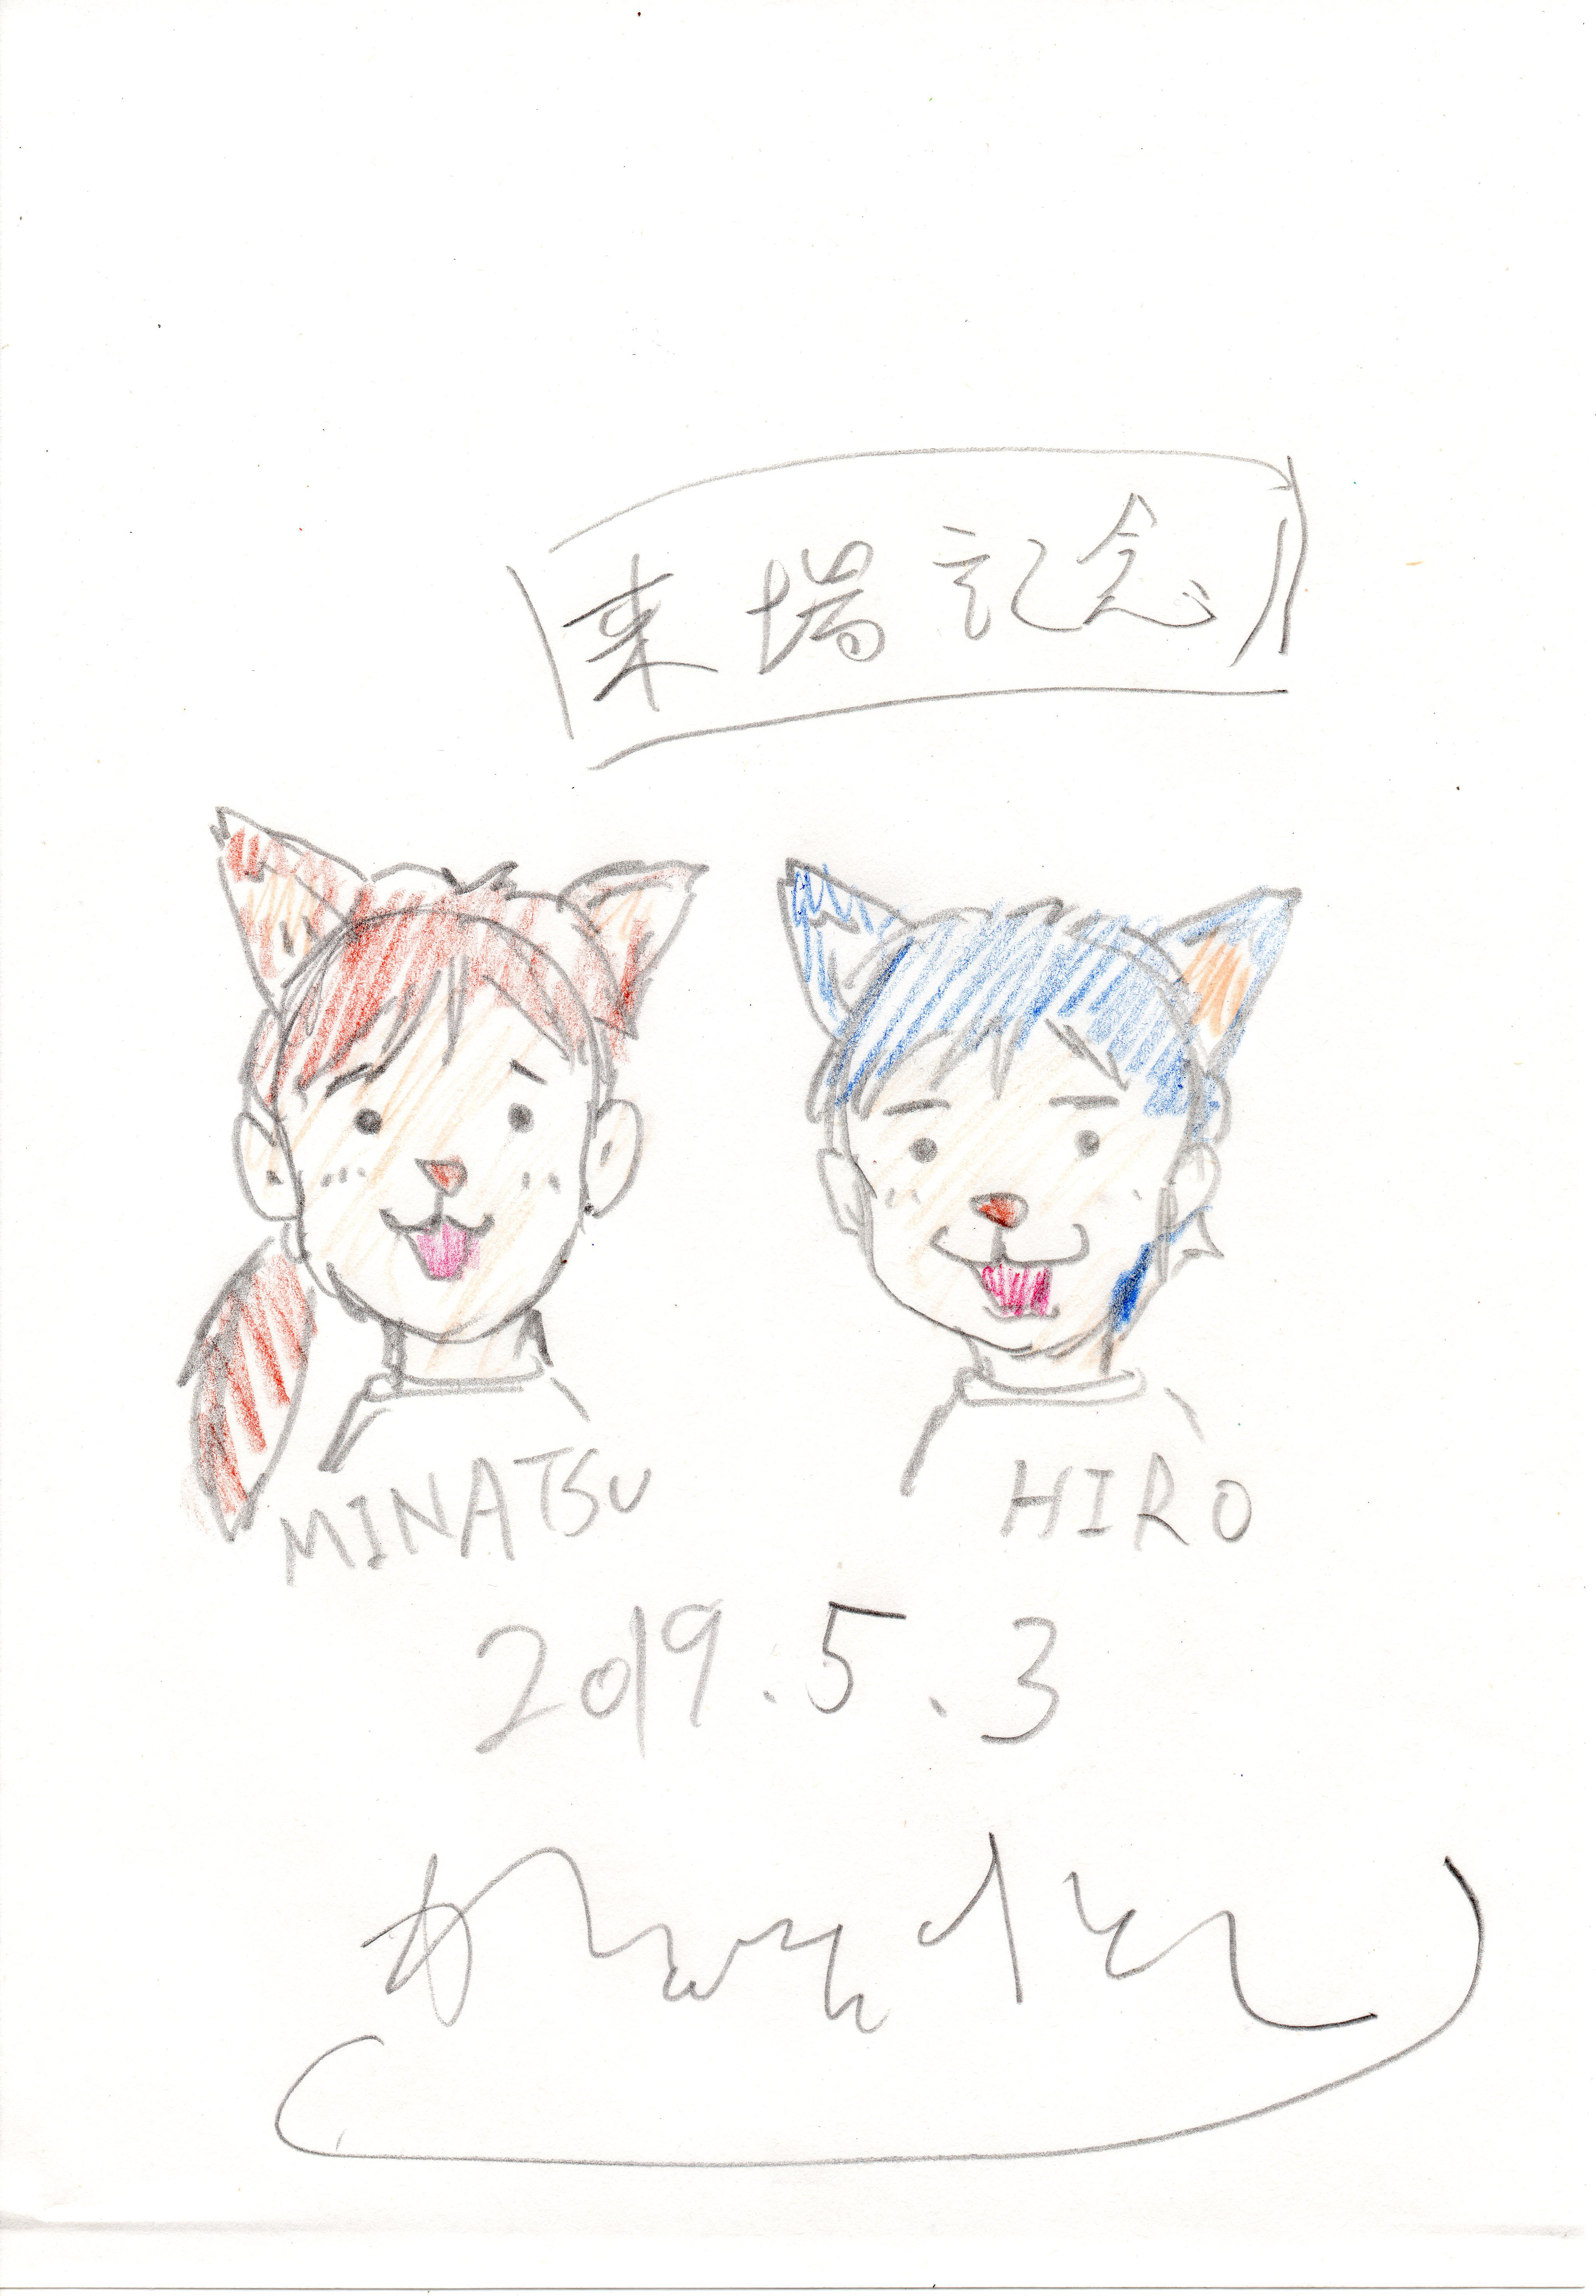 来場記念
MINATSU
HIRO
2019.5.3